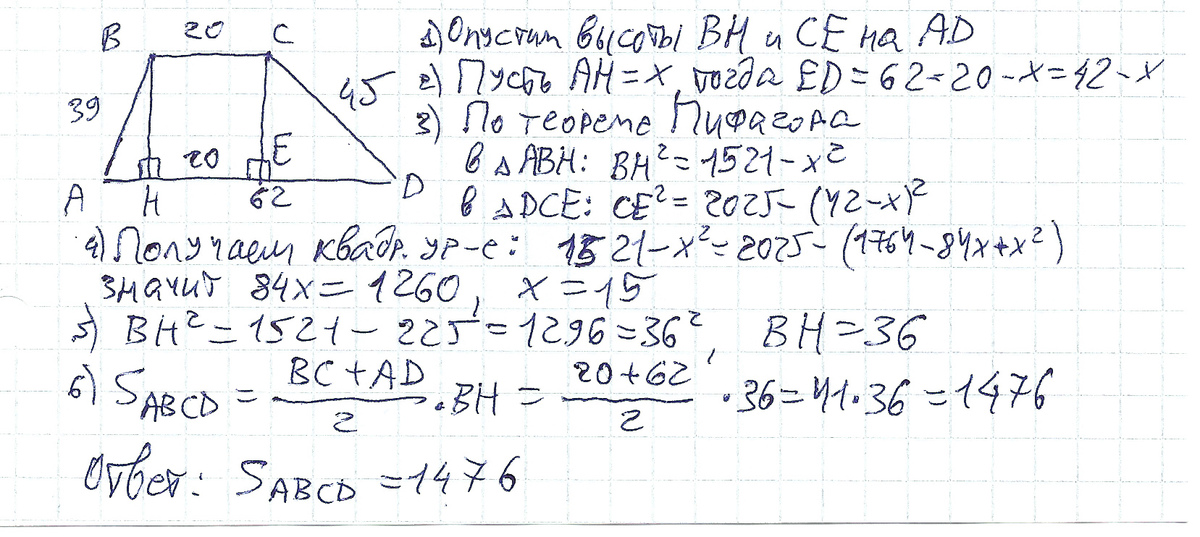 B 20 C
39 45
20 E
A H 62 D
1) Опустим высоты BH и CE на AD
2) Пусть AH = x, тогда ED = 62 - 20 - x = 42 - x
3) По теореме Пифагора
в △ABH: BH² = 1521 - x²
в △DCE: CE² = 2025 - (42 - x)²
4) Получаем квадр. ур-е: 1521 - x² = 2025 - (1764 - 84x + x²)
значит 84x = 1260, x = 15
5) BH² = 1521 - 225 = 1296 = 36², BH = 36
6) S_ABCD = (BC + AD)/2 · BH = (20 + 62)/2 · 36 = 41 · 36 = 1476
Ответ: S_ABCD = 1476